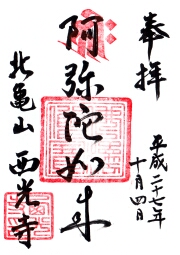 奉拝
平成二十七年
十月四日
阿弥陀如来
北亀山
西光寺